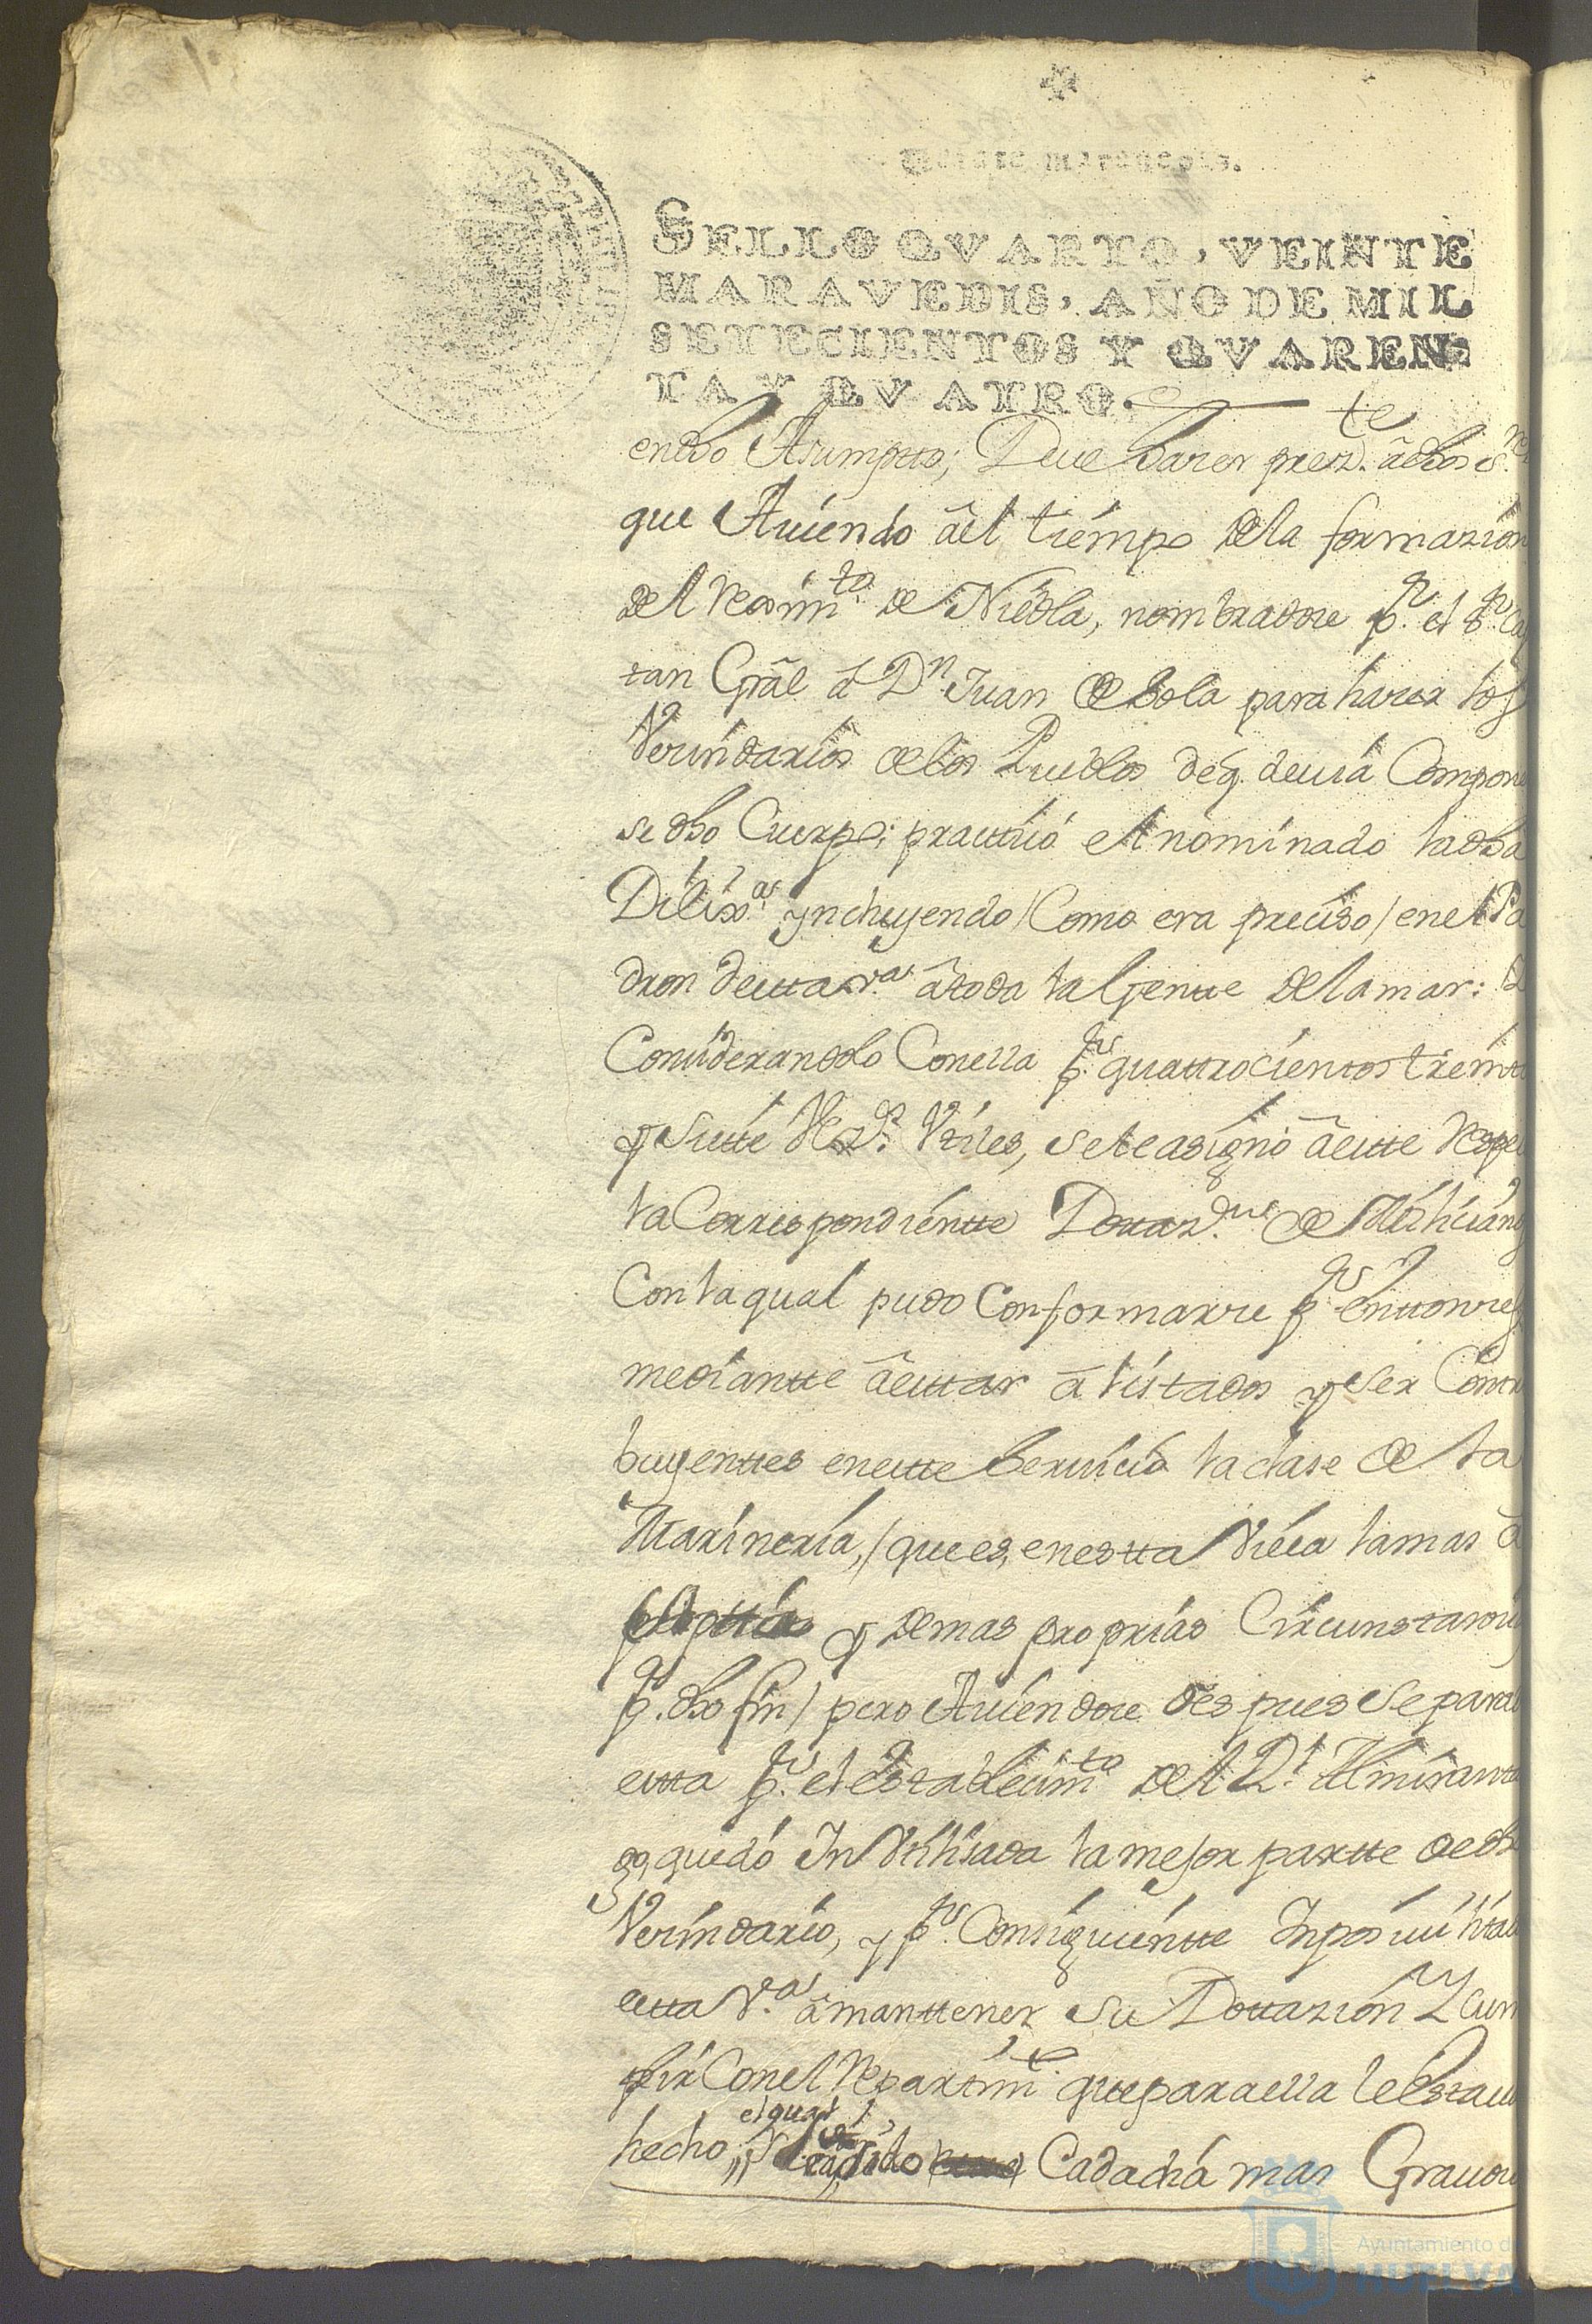 Veinte maravedis.
SELLO QVARTO, VEINTE
MARAVEDIS, AÑO DE MIL
SETECIENTOS Y QVAREN=
TA Y QVATRO.
en dho Asumptto; Deve hazer presz.te â dhos s.res
que Aviendo âel tiempo dela formazion
del Reximto de Niebla, nombradose p.r el s.r Cap
tan Grãl â Dn Juan de Sola para hazer los
Vezindarios delos Pueblos deq. devia Compone
se dho Cuerpo; practticó el nominado la dha
Dilix.as yncluyendo /Como era preciso/ enel Pa
dron de estta v.a â toda la Jentte dela mar: 
Considerandolo Con ella p.r quattrocientos treintta
y Siette Vez.s Vtiles, sele asignó â estte Respec
la Correspondientte Dottaz.on de Milicianos
Con la qual pudo Conformarse p.r enttonzes
mediantte â esttar âlistados y ser Contri
buyenttes en estte Servicio la clase de la
Marineria, /que es, en estta Villa la mas a
y demas proprias Circunstanzias
p.a dho fin/ pero Aviendose despues Separado
estta p.r el establecimto del R.l Almirantaz
go, quedó InVtilisada la mejor partte de dho
Vezindario, y p.r Consiguientte Inposivilitada
estta V.a â manttener su Dottazion Y cum
plir Con el Repartimto que para ella le Estava
hecho,, el qual ha sido Cada dia mas Gravoso
Ayuntamiento de
HUELVA